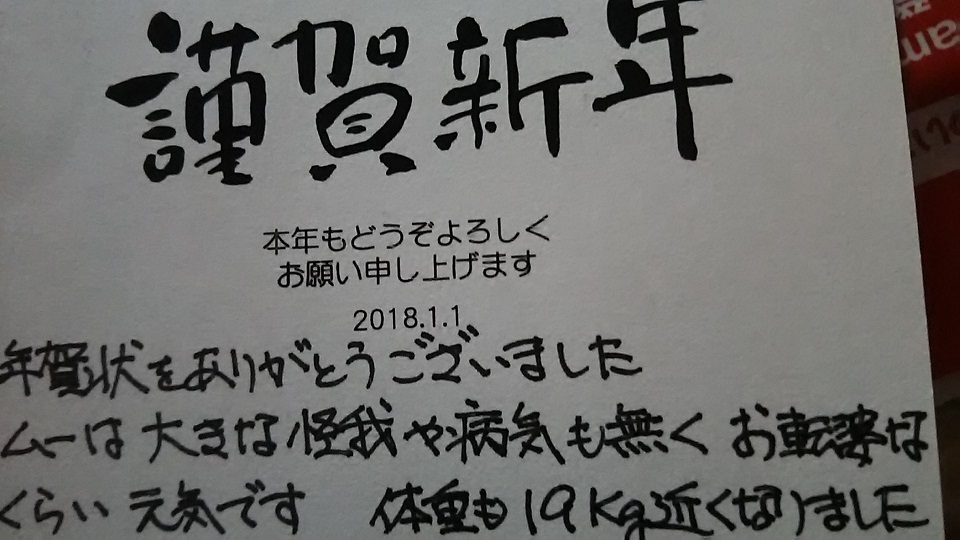 謹賀新年
本年もどうぞよろしく
お願い申し上げます
2018.1.1
年賀状をありがとうございました
ムーは大きな怪我や病気も無く お転婆な
くらい元気です 体重も19Kg近くなりました
am